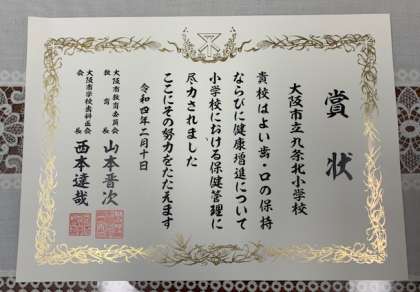 賞状
大阪市立九条北小学校
貴校はよい歯・口の保持
ならびに健康増進について
小学校における保健管理に
尽力されました
ここにその努力をたたえます
令和四年二月十日
大阪市教育委員会
教育長 山本晋次
大阪市学校歯科医会
会長 西本達哉